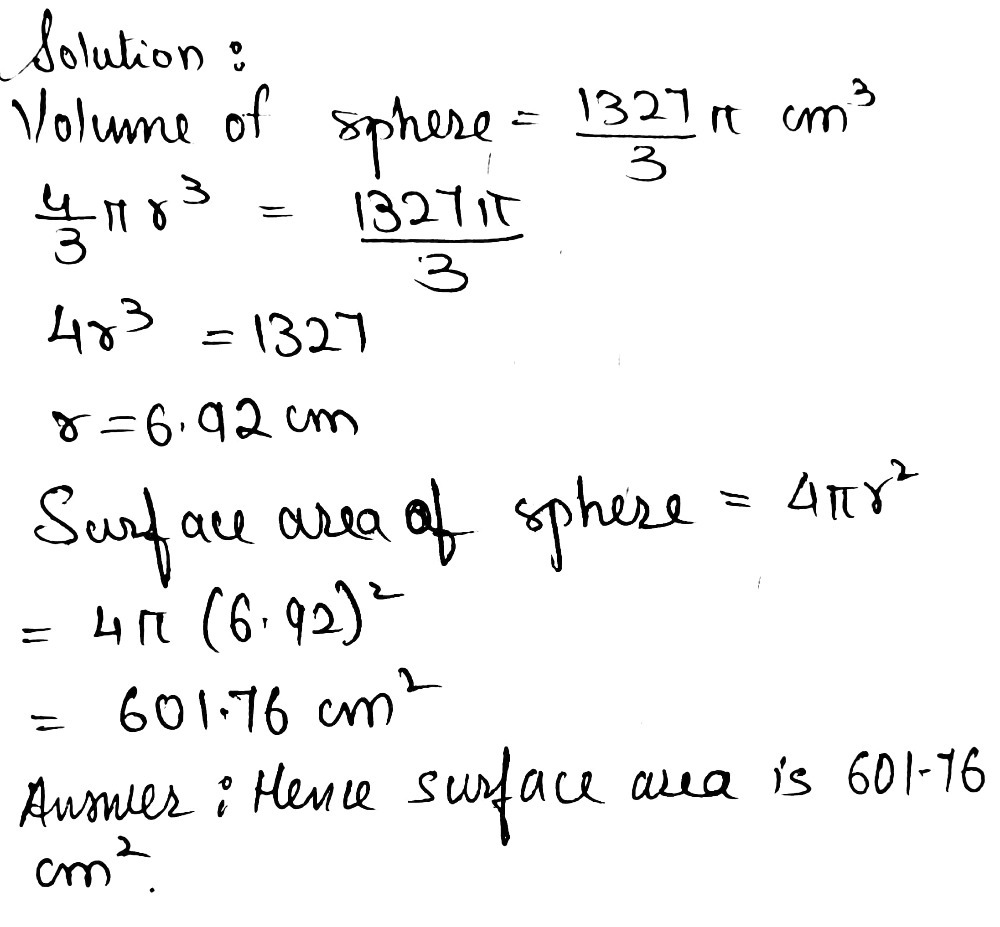 Solution :
Volume of sphere = 1327/3 π cm³
4/3 π r³ = 1327π/3
4r³ = 1327
r = 6.92 cm
Surface area of sphere = 4πr²
= 4π (6.92)²
= 601.76 cm²
Answer : Hence surface area is 601.76
cm².